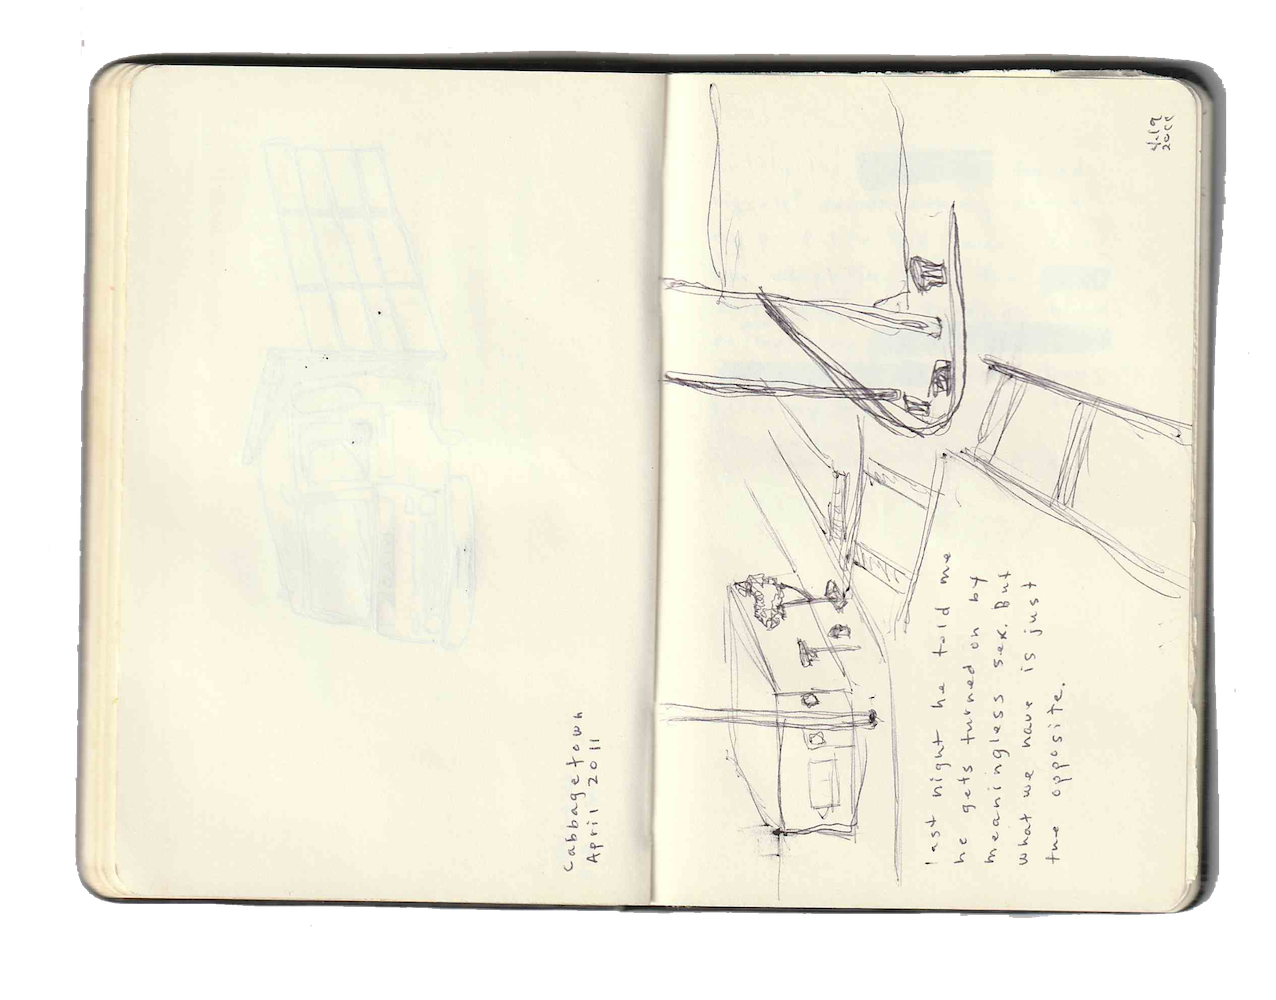 Cabbagetown
April 2011
last night he told me
he gets turned on by
meaningless sex. But
what we have is just
the opposite.
2011